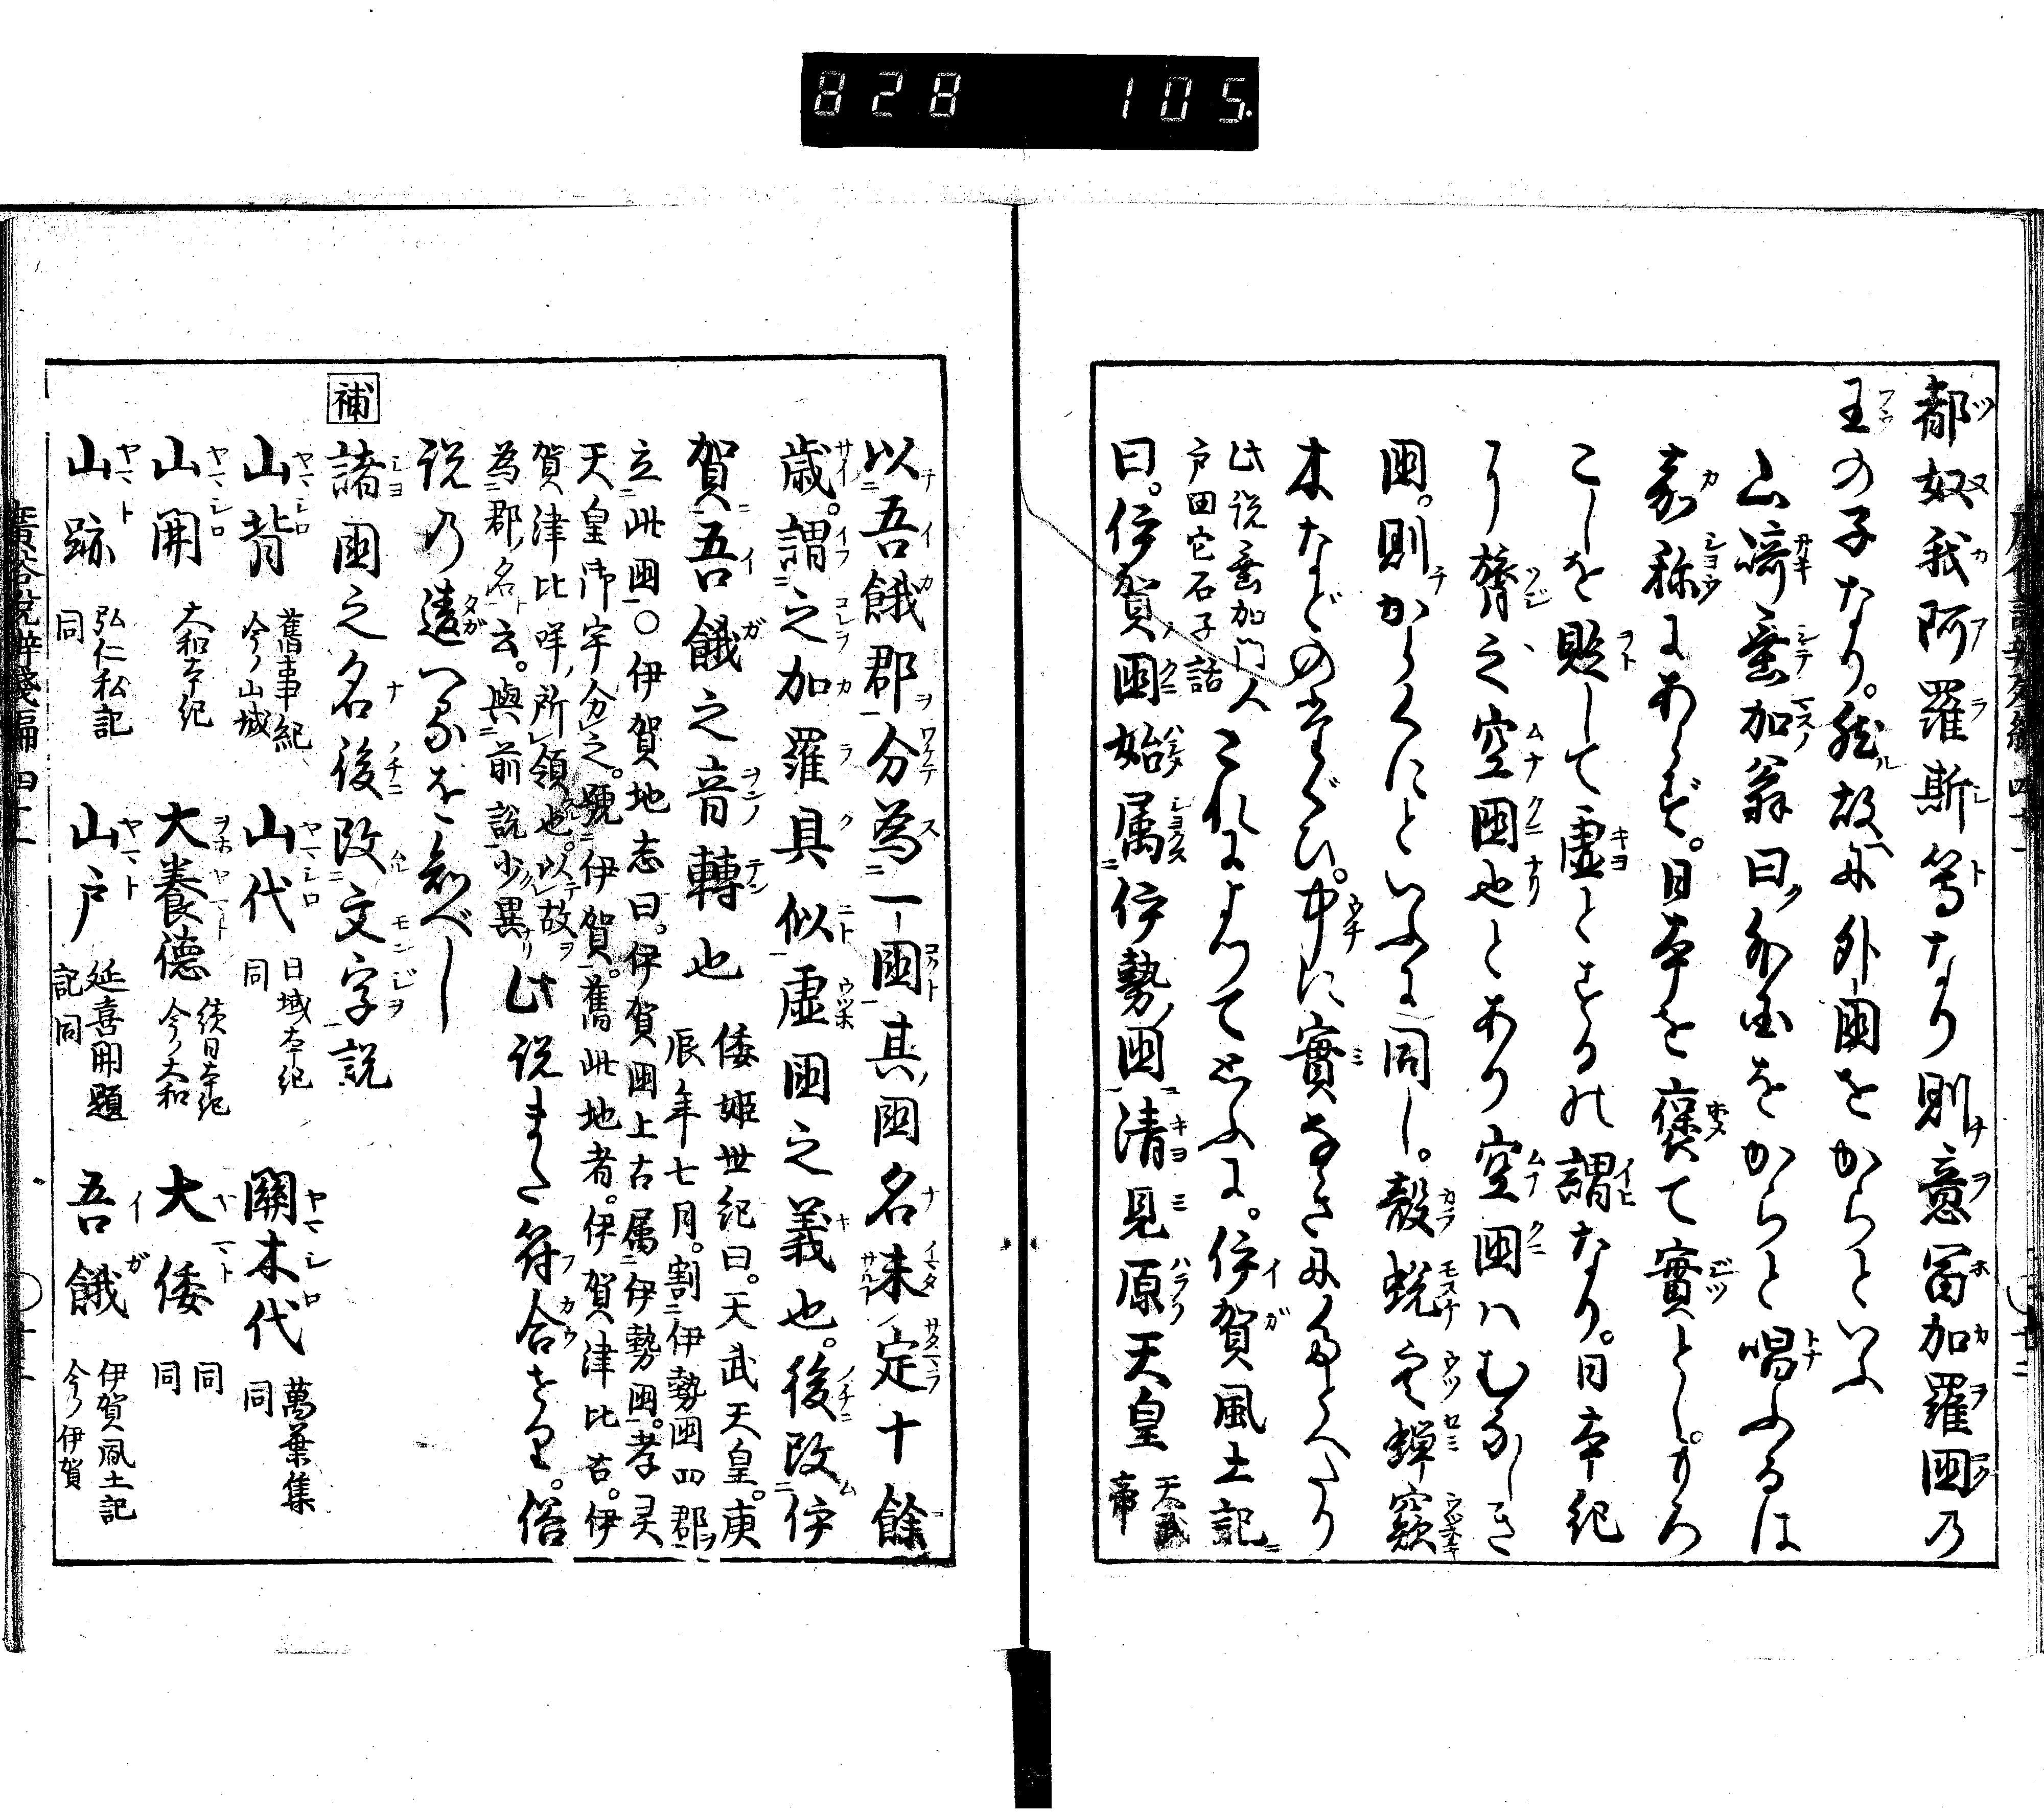 828 105.
都奴我阿羅斯等なり則意冨加羅国乃
王の子なり。然故に外国をからといふ
山﨑垂加翁曰外国をからと唱ふるは
嘉称にあらず。日本を褒て實とし。もろ
こしを貶して虚とするの謂なり。日本紀
に膂之空国也とあり空国ハむなしき
国。則からくにといふに同し。殻蛻空蝉窾
木などのたぐひ。中に實なきにたとへたり
此説垂加門人
戸田宅石子話
これによつて思ふに。伊賀風土記
曰。伊賀国始属伊勢国清見原天皇
天武
帝
以吾餓郡分為一国其国名未定十餘
歳。謂之加羅具似虚国之義也。後改伊
賀吾餓之音轉也
倭姫世紀曰。天武天皇。庚
辰年七月。割伊勢国四郡
立此国〇伊賀地志曰。伊賀国上古属伊勢国。孝灵
天皇御宇分之。號伊賀。舊此地者。伊賀津比古。伊
賀津比咩,所領也。以故
為郡名云。與前説少異
此説また符合せり。俗
説の違へるを知べし
補
諸国之名後改文字説
山背
舊事紀
今ノ山城
山代
日域本紀
同
開木代
萬葉集
同
山開
大和本紀
大養德
續日本紀
今ノ大和
大倭
同
同
山跡
弘仁私記
同
山戸
延喜開題
記同
吾餓
伊賀風土記
今ノ伊賀